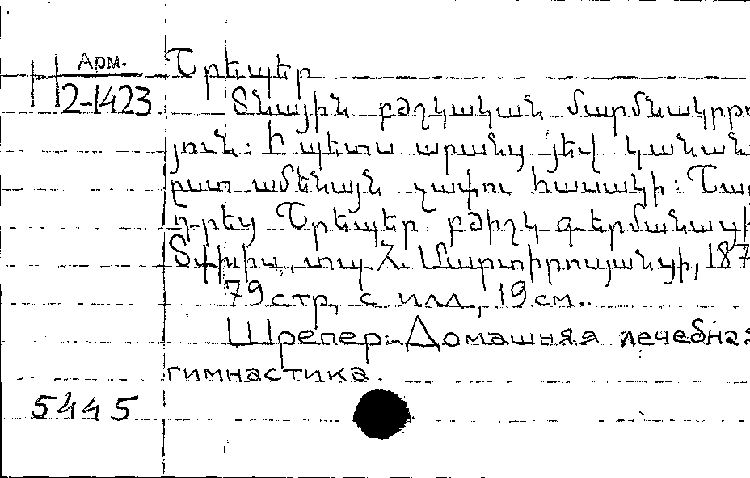 Арм.
Շրեպեր
2-1423
Տնային բժշկական մարմնակրթու
յուն: Ի պետս արանց յեվ կանանց
ըստ ամենայն չափու հասակի:
Շրեպեր բժիշկ գերմանացի
Տփխիս, տպ. Հ. Մարտիրոսյանցի, 187
79 стр, с илл, 19 см.
Шрепер. Домашняя лечебная
гимнастика.
5445